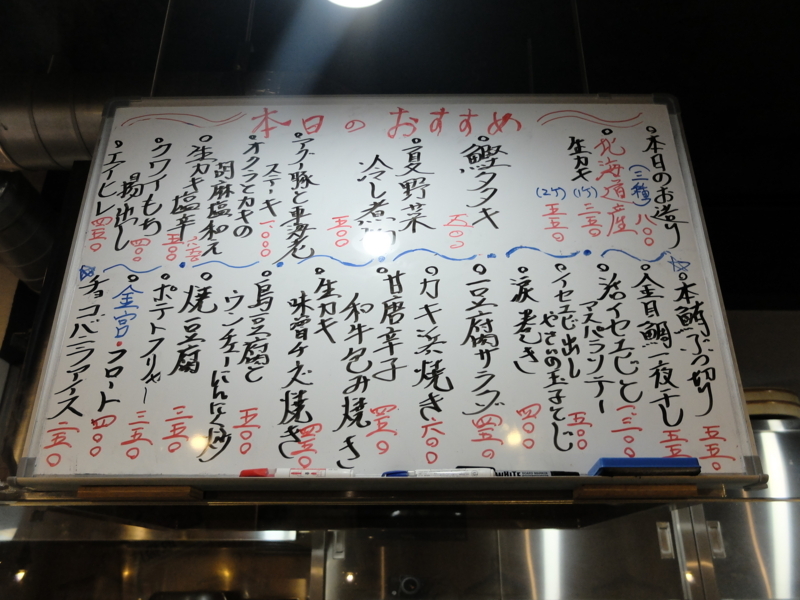 本日のおすすめ
本日のお造り
(三種)
八〇〇
北海道産
生カキ
(1ケ) 三五〇
(2ケ) 五五〇
鰹タタキ
五〇〇
夏野菜
冷し煮
五〇〇
アグー豚と車海老
ステーキ
一、〇〇〇
オクラとカキの
胡麻塩和え
生カキ塩辛
五〇〇
クワイもち
揚出し
四〇〇
エイヒレ
四五〇
本鮪ぶつ切り
五五〇
金目鯛一夜干し
五五〇
活イセエビと
アスパラソテー
イセエビ出し
やさいの玉子とじ
五〇〇
涙巻き
四〇〇
豆腐サラダ
四五〇
カキ浜焼き
六〇〇
甘唐辛子
和牛包み焼き
四五〇
生カキ
味噌チーズ焼き
四五〇
島豆腐と
ウンチェーにんにく炒め
五〇〇
焼豆腐
三五〇
ポテトフライ
三五〇
金宮・フロート
四〇〇
チョコバニラアイス
二五〇
WHITE